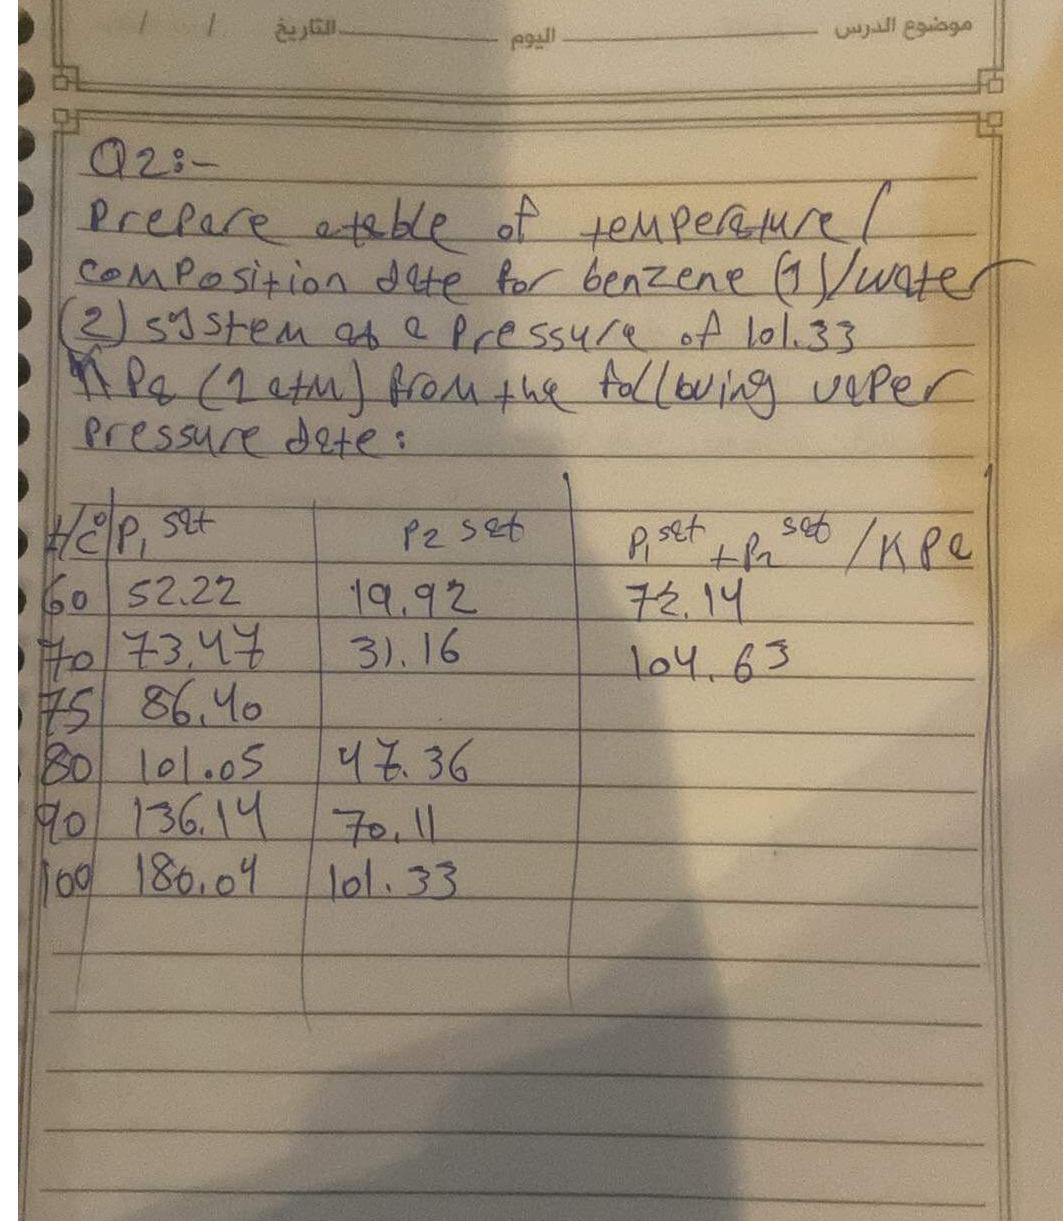 موضوع الدرس اليوم التاريخ / /
Q2:-
Prepare atable of temperature/
composition date for benzene (1)/water
(2) system at a pressure of 101.33
KPa (1 atm) from the following vaper
pressure date:
t/C° P1 sat P2 sat P1 sat + P2 sat /KPa
60 52.22 19.92 72.14
70 73.47 31.16 104.63
75 86.40
80 101.05 47.36
90 136.14 70.11
100 180.04 101.33